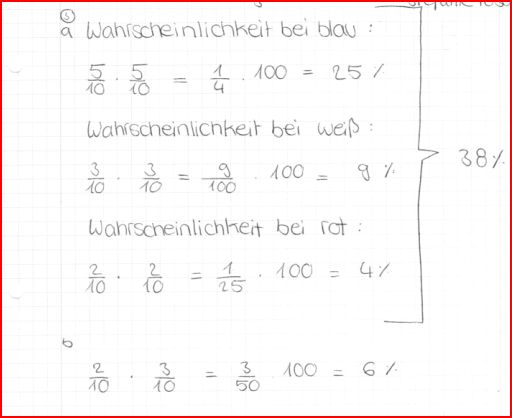 ③
a Wahrscheinlichkeit bei blau :
5/10 · 5/10 = 1/4 · 100 = 25 %
Wahrscheinlichkeit bei weiß :
3/10 · 3/10 = 9/100 · 100 = 9 %
38 %
Wahrscheinlichkeit bei rot :
2/10 · 2/10 = 1/25 · 100 = 4 %
b
2/10 · 3/10 = 3/50 · 100 = 6 %